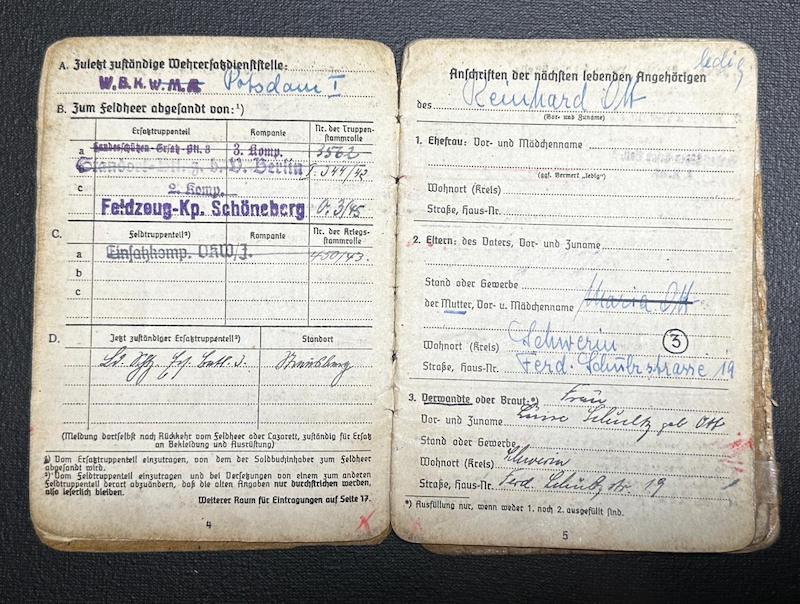 A. Zuletzt zuständige Wehrersatzdienststelle:
W.B.K. W.M.A. Potsdam I
B. Zum Feldheer abgesandt von:¹)
Ersatztruppenteil Kompanie Nr. der Truppenstammrolle
a Landesschützen-Ersatz-Btl. 3 3. Komp. 3562
Standort-Btl. z. b. V. Berlin 544/42
c 2. Komp.
Feldzeug-Kp. Schöneberg 0. 3/45
C. Feldtruppenteil²) Kompanie Nr. der Kriegsstammrolle
a Einsatzkomp. OKW/J. 450/43.
b
c
D. Jetzt zuständiger Ersatztruppenteil³) Standort
Ld. Schtz. Ers. Batl. 3. Strausberg
(Meldung dortselbst nach Rückkehr vom Feldheer oder Lazarett, zuständig für Ersatz
an Bekleidung und Ausrüstung)
¹) Vom Ersatztruppenteil einzutragen, von dem der Soldbuchinhaber zum Feldheer
abgesandt wird.
²) Vom Feldtruppenteil einzutragen und bei Versetzungen von einem zum anderen
Feldtruppenteil derart abzuändern, daß die alten Angaben nur durchstrichen werden,
also leserlich bleiben.
Weiterer Raum für Eintragungen auf Seite 17.
4
ledig
Anschriften der nächsten lebenden Angehörigen
des Reinhard Ott
(Vor- und Zuname)
1. Ehefrau: Vor- und Mädchenname
(ggf. Vermerk „ledig")
Wohnort (Kreis)
Straße, Haus-Nr.
2. Eltern: des Vaters, Vor- und Zuname
Stand oder Gewerbe
der Mutter, Vor- u. Mädchenname Maria Ott
Wohnort (Kreis) Schwerin 3
Straße, Haus-Nr. Ferd. Schulzstrasse 19
3. Verwandte oder Braut:*) Frau
Vor- und Zuname Schultz geb. Ott
Stand oder Gewerbe
Wohnort (Kreis) Schwerin
Straße, Haus-Nr. Ferd. Schultz str. 19
*) Ausfüllung nur, wenn weder 1. noch 2. ausgefüllt sind.
5